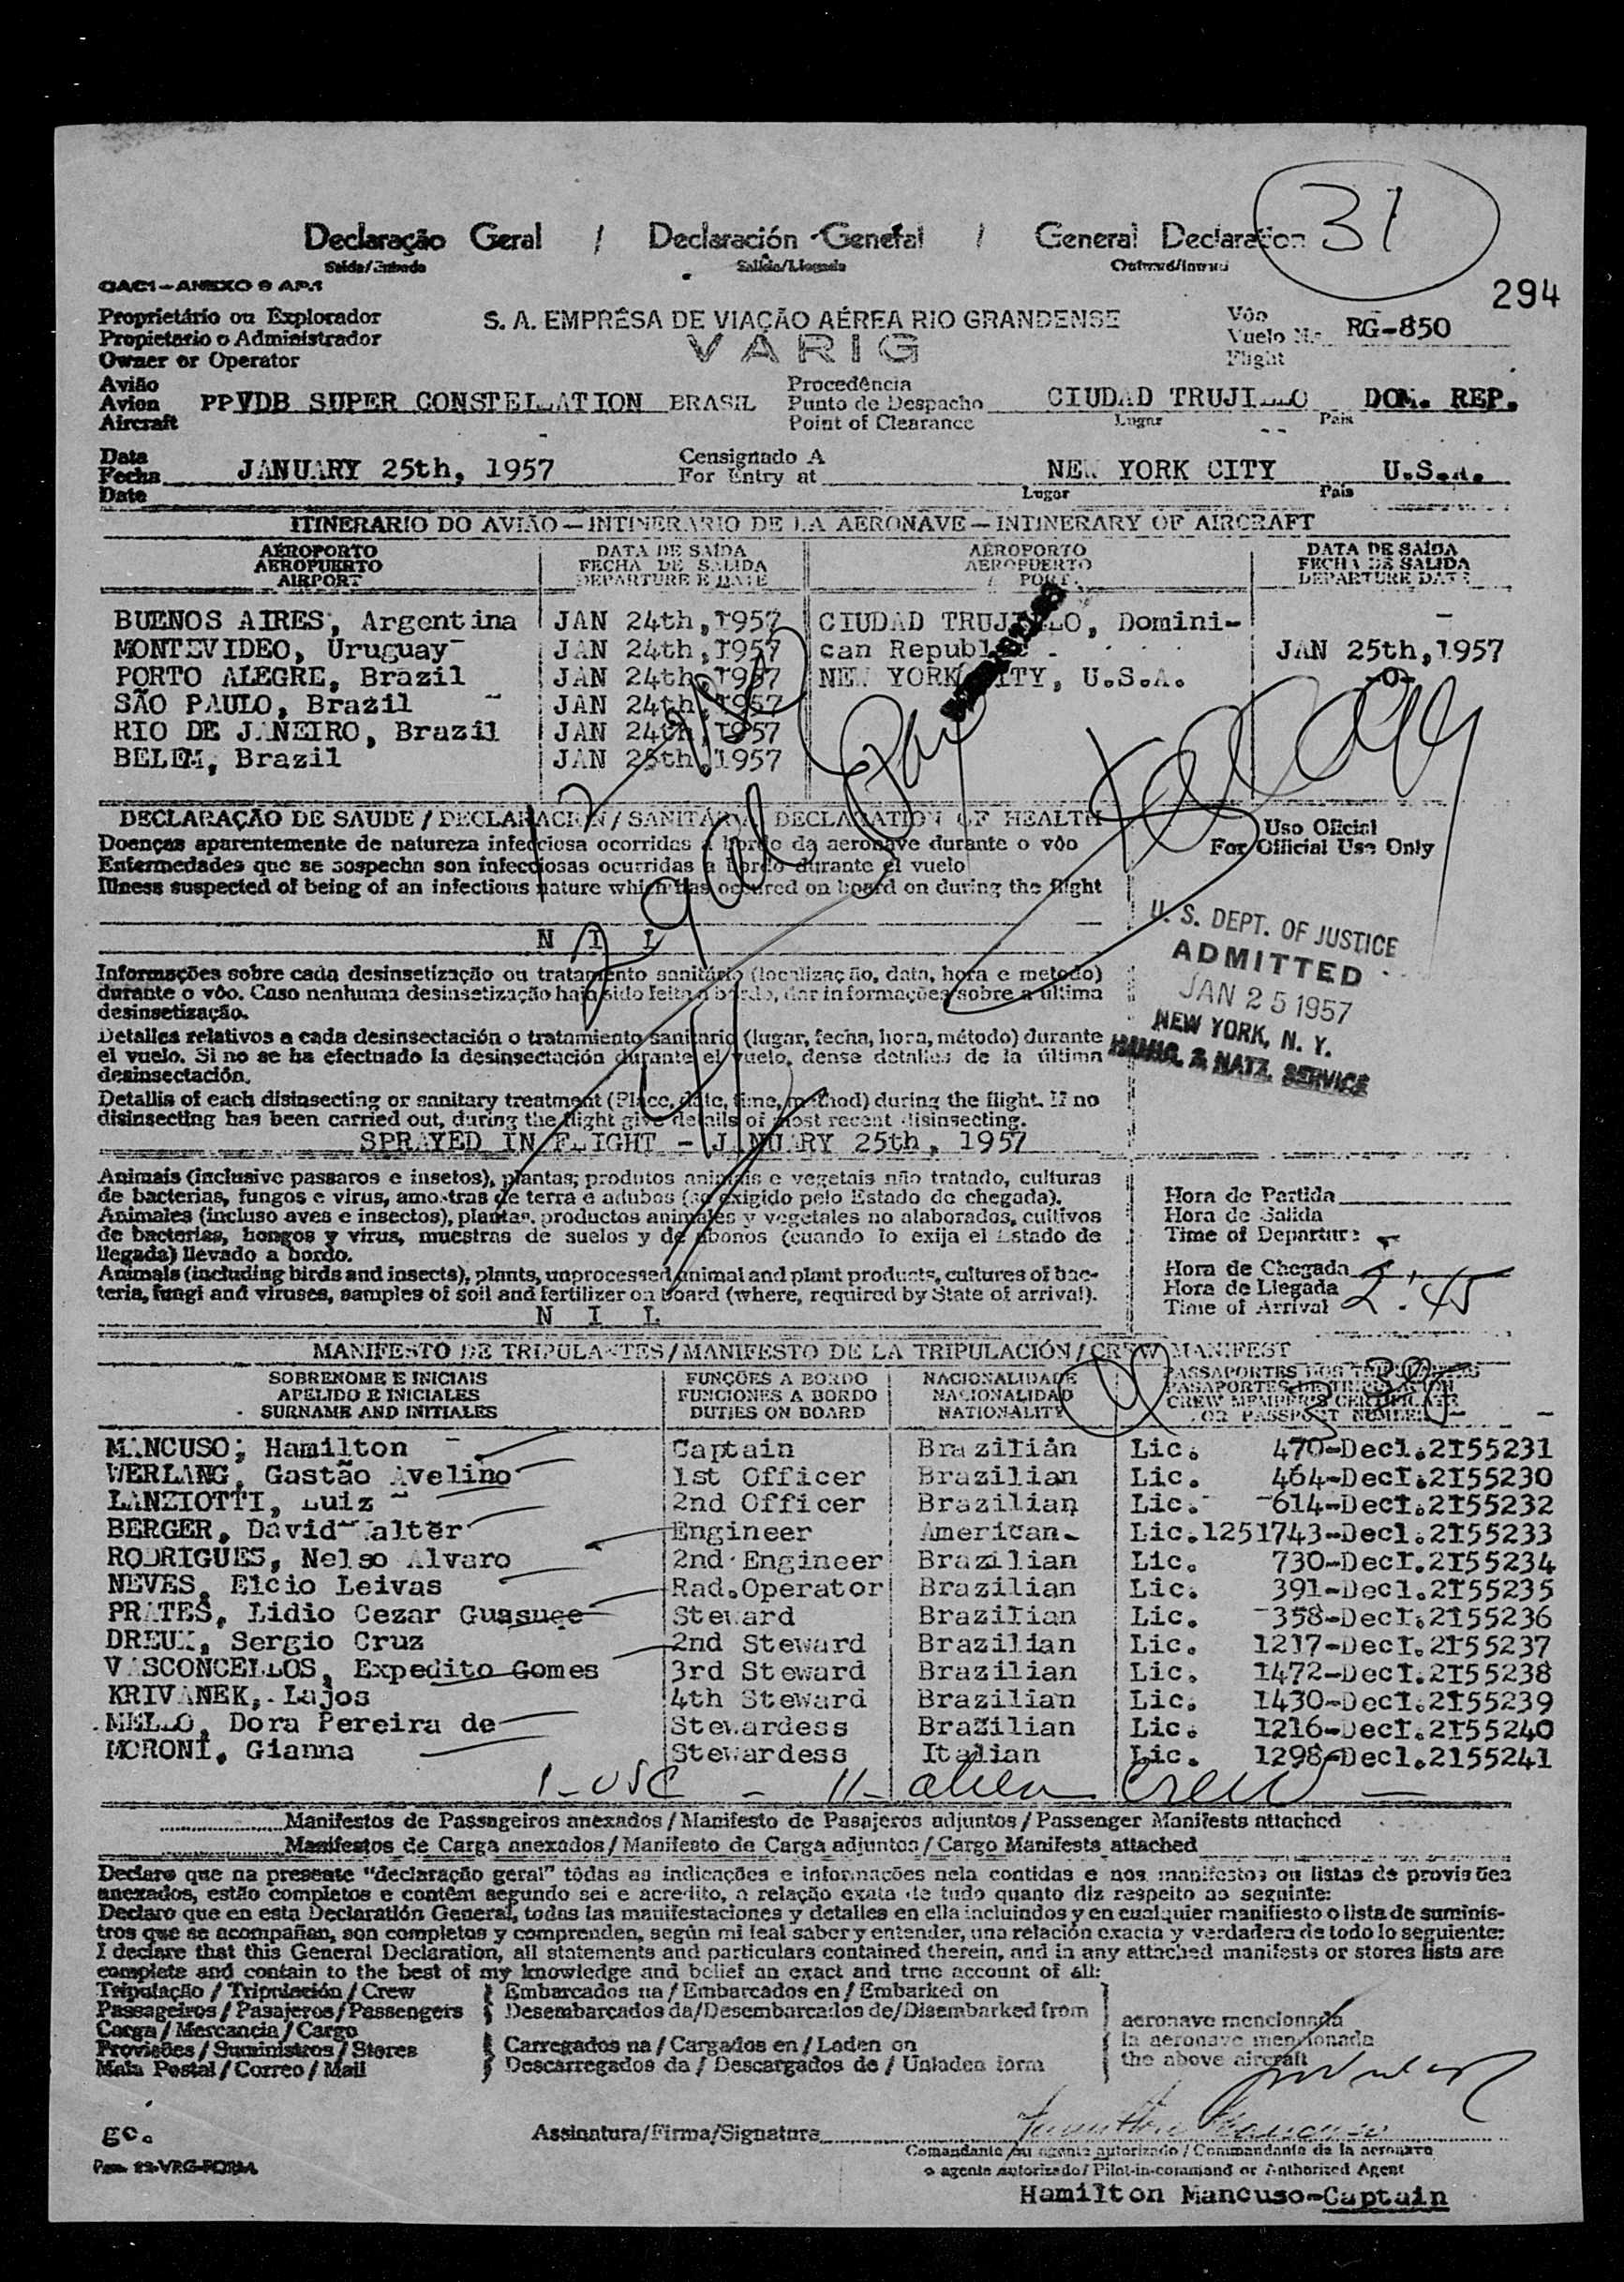 31
294
Declaração Geral / Declaración General / General Declaration
Saída/Entrada Salida/Llegada Outward/Inward
OACI-ANEXO 9 AP.1
Proprietário ou Explorador
Propietario o Administrador
Owner or Operator
S. A. EMPRÊSA DE VIAÇÃO AÉREA RIO GRANDENSE
VARIG
Vôo
Vuelo No. RG-850
Flight
Avião
Avion PPVDB SUPER CONSTELLATION BRASIL
Aircraft
Procedência
Punto de Despacho CIUDAD TRUJILLO DOM. REP.
Point of Clearance Lugar País
Data
Fecha JANUARY 25th, 1957
Date
Consignado A
For Entry at NEW YORK CITY U.S.A.
Lugar País
ITINERARIO DO AVIÃO — INTINERARIO DE LA AERONAVE — INTINERARY OF AIRCRAFT
AÉROPORTO DATA DE SAÍDA AÉROPORTO DATA DE SAÍDA
AEROPUERTO FECHA DE SALIDA AEROPUERTO FECHA DE SALIDA
AIRPORT DEPARTURE DATE PORT DEPARTURE DATE
BUENOS AIRES, Argentina JAN 24th,1957 CIUDAD TRUJILLO, Domini- -
MONTEVIDEO, Uruguay JAN 24th,1957 can Republic JAN 25th,1957
PORTO ALEGRE, Brazil JAN 24th,1957 NEW YORK CITY, U.S.A. -0-
SÃO PAULO, Brazil JAN 24th,1957
RIO DE JANEIRO, Brazil JAN 24th,1957
BELEM, Brazil JAN 25th,1957
DECLARAÇÃO DE SAUDE / DECLARACIÓN / SANITÁRIA DECLARATION OF HEALTH
Doenças aparentemente de natureza infecciosa ocorridas a bordo da aeronave durante o vôo
Enfermedades que se sospecha son infecciosas ocurridas a bordo durante el vuelo
Illness suspected of being of an infectious nature which has occured on board on during the flight
N I L
Uso Oficial
For Official Use Only
U. S. DEPT. OF JUSTICE
ADMITTED
JAN 25 1957
NEW YORK, N. Y.
IMMIG. & NATZ. SERVICE
Informações sobre cada desinsetização ou tratamento sanitário (localização, data, hora e metodo)
durante o vôo. Caso nenhuma desinsetização haja sido feita a bordo, dar informações sobre a última
desinsetização.
Detalles relativos a cada desinsectación o tratamiento sanitario (lugar, fecha, hora, método) durante
el vuelo. Si no se ha efectuado la desinsectación durante el vuelo, dense detalles de la última
desinsectación.
Detallis of each disinsecting or sanitary treatment (Place, date, time, method) during the flight. If no
disinsecting has been carried out, during the flight give details of most recent disinsecting.
SPRAYED IN FLIGHT - JANUARY 25th, 1957
Animais (inclusive passaros e insetos), plantas; produtos animais e vegetais não tratado, culturas
de bacterias, fungos e virus, amostras de terra e adubos (se exigido pelo Estado de chegada).
Animales (incluso aves e insectos), plantas, productos animales y vegetales no alaborados, cultivos
de bacterias, hongos y virus, muestras de suelos y de abonos (cuando lo exija el Estado de
llegada) llevado a bordo.
Animals (including birds and insects), plants, unprocessed animal and plant products, cultures of bac-
teria, fungi and viruses, samples of soil and fertilizer on board (where, required by State of arrival).
N I L
Hora de Partida
Hora de Salida
Time of Departure
Hora de Chegada
Hora de Llegada
Time of Arrival 2:45
MANIFESTO DE TRIPULANTES / MANIFESTO DE LA TRIPULACIÓN / CREW MANIFEST
SOBRENOME E INICIAIS FUNÇÕES A BORDO NACIONALIDADE PASSAPORTES DOS TRIPULANTES
APELIDO E INICIALES FUNCIONES A BORDO NACIONALIDAD PASAPORTES DE TRIPULACION
SURNAME AND INITIALES DUTIES ON BOARD NATIONALITY CREW MEMBER'S CERTIFICATE
OR PASSPORT NUMBER
MANCUSO; Hamilton Captain Brazilian Lic. 470-Decl.2155231
WERLANG, Gastão Avelino 1st Officer Brazilian Lic. 464-Decl.2155230
LANZIOTTI, Luiz 2nd Officer Brazilian Lic. 614-Decl.2155232
BERGER, David Walter Engineer American Lic.1251743-Decl.2155233
RODRIGUES, Nelso Alvaro 2nd Engineer Brazilian Lic. 730-Decl.2155234
NEVES, Elcio Leivas Rad.Operator Brazilian Lic. 391-Decl.2155235
PRATES, Lidio Cezar Guasuee Steward Brazilian Lic. 358-Decl.2155236
DREUX, Sergio Cruz 2nd Steward Brazilian Lic. 1217-Decl.2155237
VASCONCELLOS, Expedito Gomes 3rd Steward Brazilian Lic. 1472-Decl.2155238
KRIVANEK, Lajos 4th Steward Brazilian Lic. 1430-Decl.2155239
MELLO, Dora Pereira de Stewardess Brazilian Lic. 1216-Decl.2155240
MORONI, Gianna Stewardess Italian Lic. 1298-Decl.2155241
1-USC - 11-alien Crew
Manifestos de Passageiros anexados / Manifesto de Pasajeros adjuntos / Passenger Manifests attached
Manifestos de Carga anexados / Manifesto de Carga adjuntos / Cargo Manifests attached
Declaro que na presente "declaração geral" tôdas as indicações e informações nela contidas e nos manifestos ou listas de provisões
anexados, estão completos e contêm segundo sei e acredito, a relação exata de tudo quanto diz respeito ao seguinte:
Declaro que en esta Declaratión General, todas las manifestaciones y detalles en ella incluindos y en cualquier manifiesto o lista de suminis-
tros que se acompañan, son completos y comprenden, según mi leal saber y entender, una relación exacta y verdadera de todo lo seguiente:
I declare that this General Declaration, all statements and particulars contained therein, and in any attached manifests or stores lists are
complete and contain to the best of my knowledge and belief an exact and true account of all:
Tripulação / Tripulación / Crew
Passageiros / Pasajeros / Passengers
Carga / Mercancia / Cargo
Provisões / Suministros / Stores
Mala Postal / Correo / Mail
Embarcados na / Embarcados en / Embarked on
Desembarcados da/Desembarcados de/Disembarked from
Carregados na / Cargados en / Laden on
Descarregados da / Descargados de / Unladen form
aeronave mencionada
la aeronave mencionada
the above aircraft
gc.
Assinatura/Firma/Signature Hamilton Mancuso
Comandante ou agente autorizado / Commandante de la aeronave
o agente autorizado / Pilot-in-command or Authorized Agent
Hamilton Mancuso-Captain